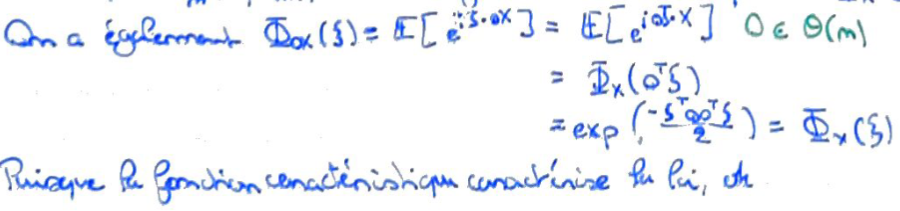 On a également Φ_{OX}(ξ) = 𝔼[e^{iξ·OX}] = 𝔼[e^{iO^Tξ·X}] O ∈ O(n)
= Φ_X(O^Tξ)
= exp(-ξ^T O O^T ξ / 2) = Φ_X(ξ)
Puisque la fonction caractéristique caractérise la loi, ok